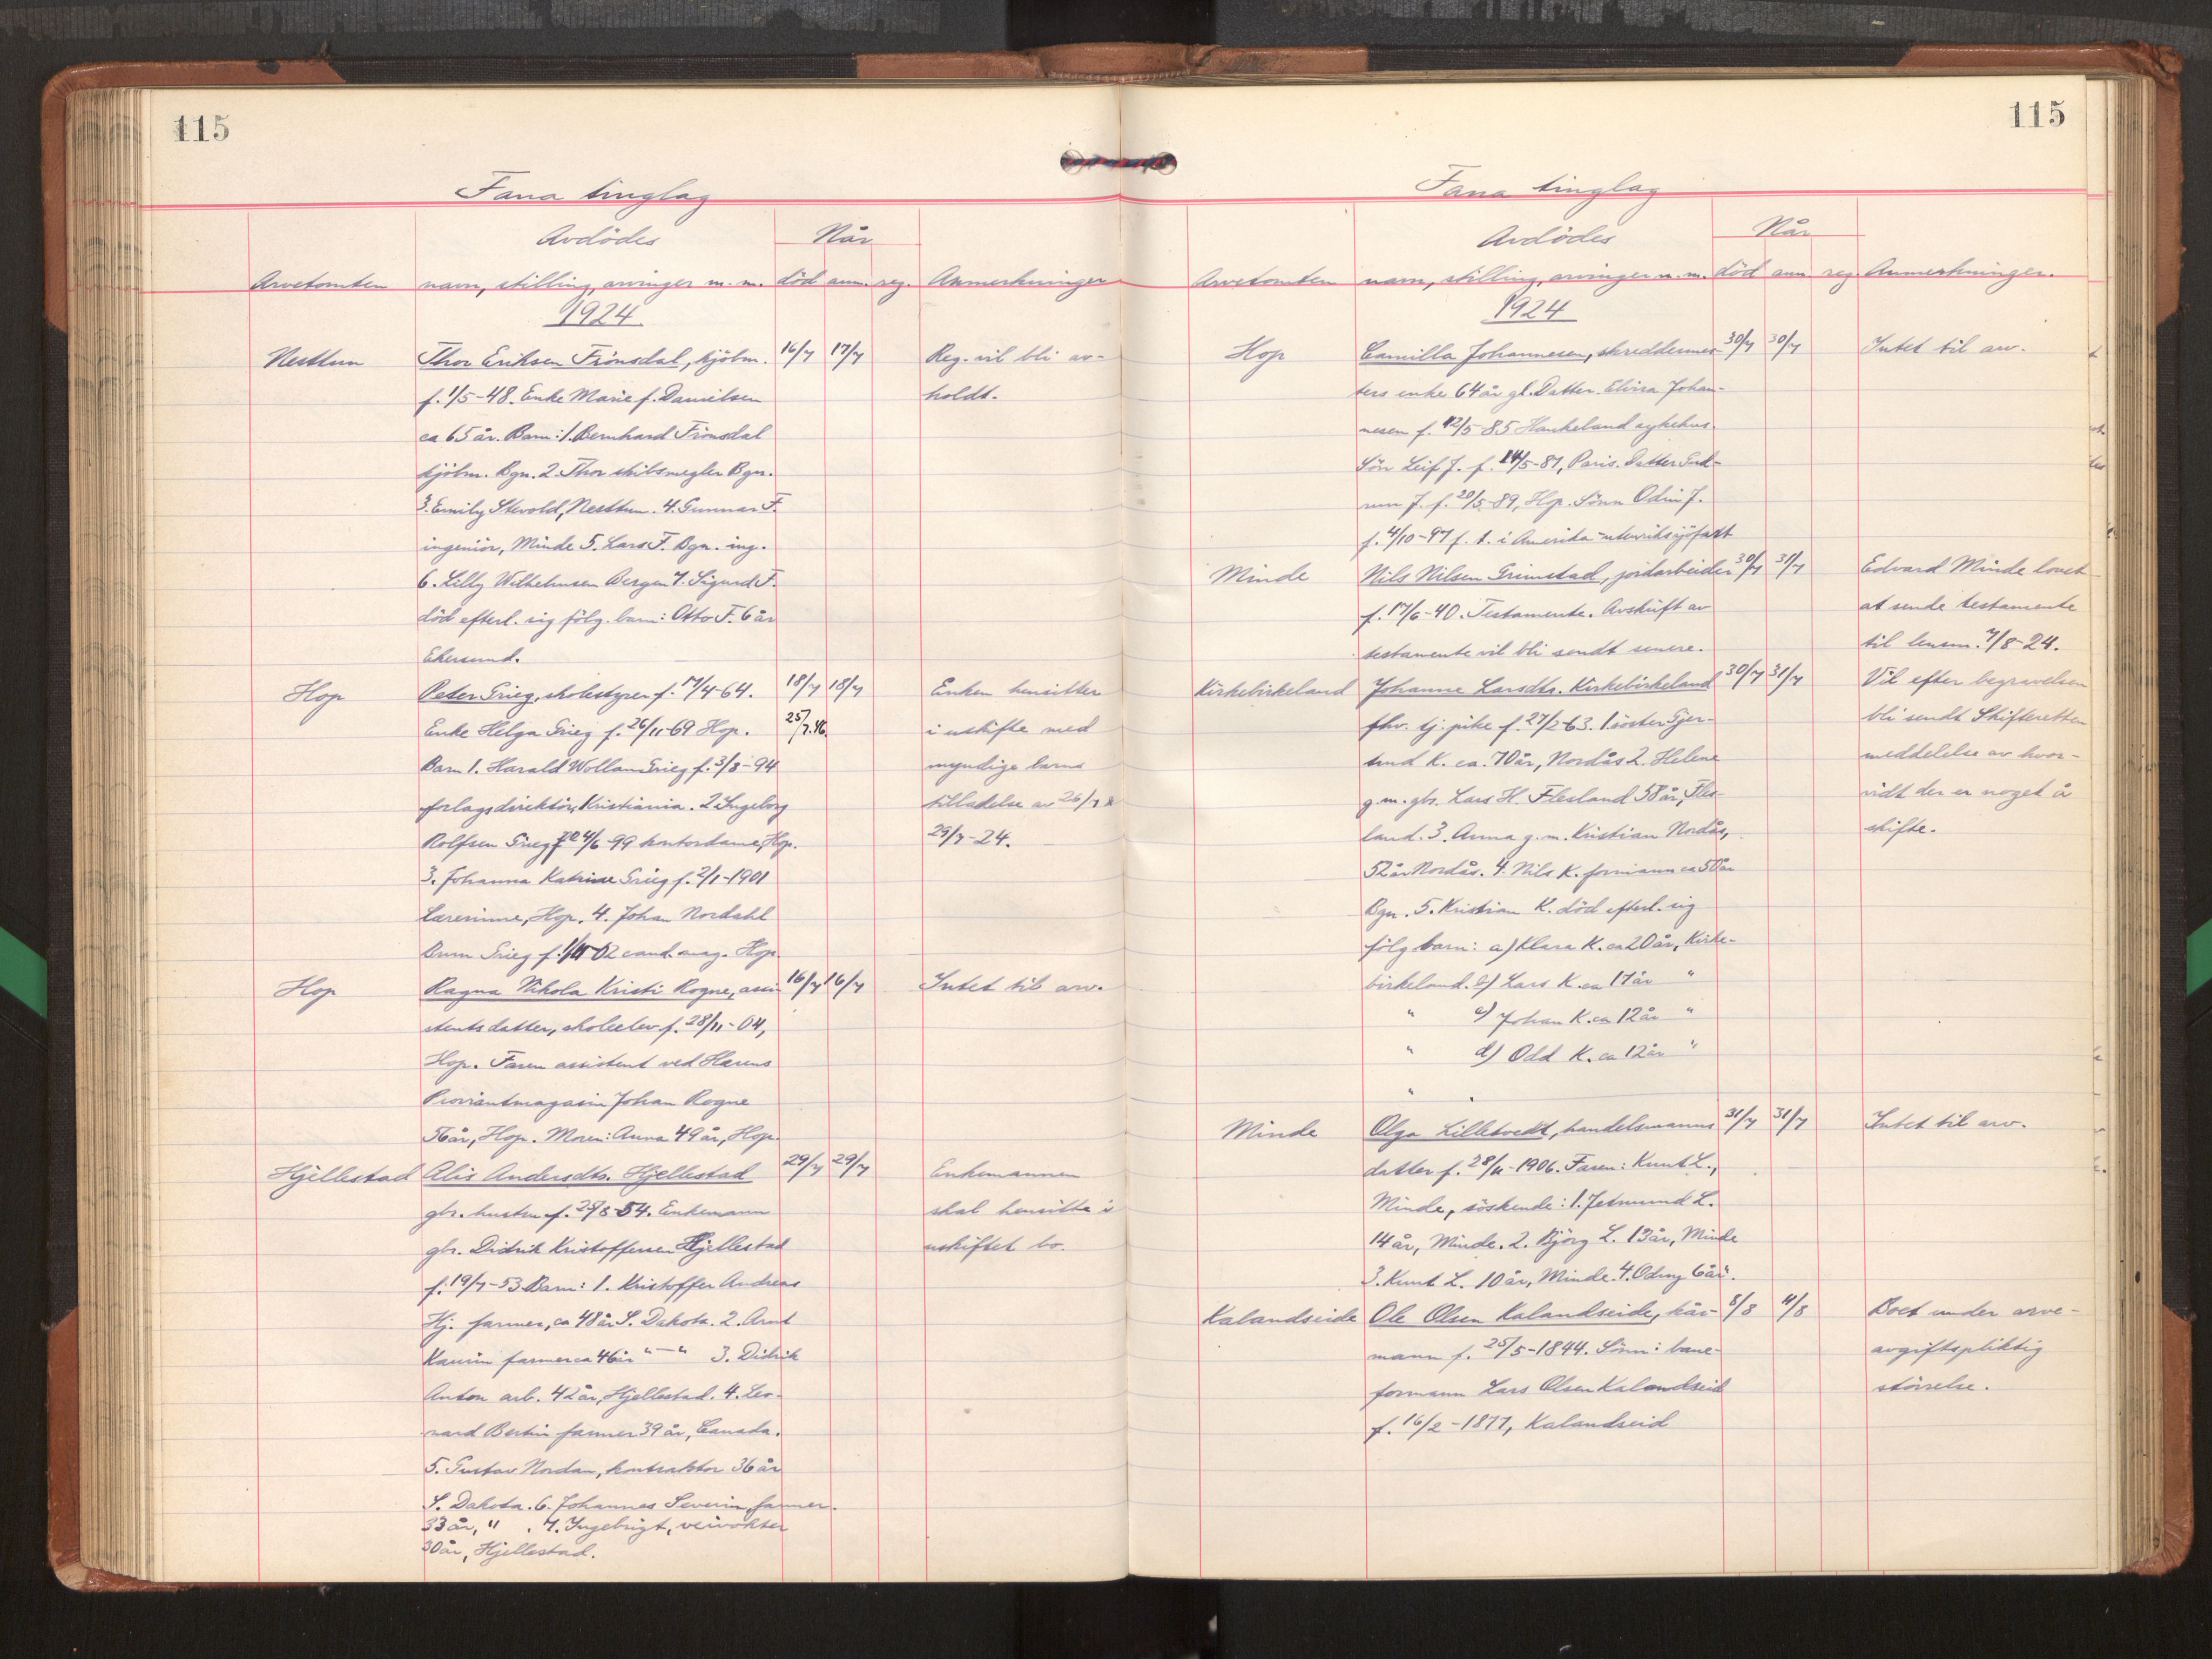 115
Fana tinglag
Avdödes
Når
Arvetomten navn, stilling, arvinger m. m. död anm. reg. Anmerkninger
1924
Nesttun Thor Eriksen Frönsdal, kjöbm. 16/7 17/7 Reg. vil bli av-
f. 1/5-48. Enke Marie f. Danielsen holdt.
ca 65 år. Barn: 1. Bernhard Frönsdal
kjöbm. Bgn. 2. Thor skibsmegler Bgn.
3. Emily Stevold, Nesttun. 4. Gunnar F.
ingeniör, Minde 5. Lars F. Bgn. ing.
6. Lilly Wilhelmsen Bergen 7. Sigurd F.
död efterl. sig fölg. barn: Otto F. 6 år
Ekersund.
Hop Peter Grieg, skolestyrer f. 17/4-64. 18/7 18/7 Enken hensitter
Enke Helga Grieg f. 26/11-69 Hop. 25/7.46. i uskifte med
Barn 1. Harald Wollan Grieg f. 3/8-94 myndige barns
forlagsdirektör, Kristiania. 2 Ingeborg tilladelse av 26/7 &
Rolfsen Grieg f. 24/6-99 kontordame, Hop. 29/7-24.
3. Johanna Katrine Grieg f. 2/1-1901
Lærerinne, Hop. 4. Johan Nordahl
Brun Grieg f. 1/11-02 cand. mag. Hop.
Hop Ragna Nikola Kristi Rogne, assi 16/7 16/7 Intet til arv.
stents datter, skoleelev f. 28/11-04,
Hop. Faren assistent ved Hærens
Proviantmagasin Johan Rogne
56 år, Hop. Moren: Anna 49 år, Hop.
Hjellestad Alis Andersdtr. Hjellestad 29/7 29/7 Enkemannen
gbr. hustru f. 25/8-54. Enkemann skal hensitte i
gbr. Didrik Kristoffersen Hjellestad uskiftet bo.
f. 19/7-53 Barn: 1. Kristoffer Andreas
Hj. farmer, ca 48 år S. Dakota. 2. Arnt
Kaurin farmer ca 46 år " — " 3. Didrik
Anton arb. 42 år, Hjellestad. 4. Leo-
nard Bertin farmer 39 år, Canada.
5. Gustav Nordan, kontraktor 36 år
S. Dakota. 6. Johannes Severin, farmer.
33 år, " . 7. Ingebrigt, veivokter
30 år, Hjellestad.
115
Fana tinglag
Avdödes
Når
Arvetomten navn, stilling, arvinger m. m. död anm. reg. Anmerkninger.
1924
Hop Camilla Johannesen, skreddermes- 30/7 30/7 Intet til arv.
ters enke 64 år gl. Datter Elvira Johan-
nesen f. 12/5-85 Haukeland sykehus.
Sön Leif J. f. 14/5-87, Paris. Datter Gud-
run J. f. 20/5-89, Hop. Sönn Odin J.
f. 4/10-97 f. t. i Amerika-utenriksjöfart
Minde Nils Nilsen Grimstad, jordarbeider 30/7 31/7 Edvard Minde lovet
f. 17/6-40. Testamente. Avskrift av at sende testamente
testamente vil bli sendt senere. til lensm. 7/8-24.
Kirkebirkeland Johanne Larsdtr. Kirkebirkeland 30/7 31/7 Vil efter begravelsen
fhv. tj. pike f. 27/2-63. 1. söster Gjer- bli sendt Skifteretten
trud K. ca. 70 år, Nordås 2. Helene meddelelse av hvor-
g. m. gbr. Lars H. Flesland 58 år, Fles- vidt der er noget å
land. 3. Anna g. m. Kristian Nordås, skifte.
52 år Nordås. 4. Nils K. formann ca 50 år
Bgn. 5. Kristian K. död efterl. sig
fölg barn: a) Klara K. ca 20 år, Kirke-
birkeland. b) Lars K. ca 17 år "
" c) Johan K. ca 12 år "
" d) Odd K. ca 12 år "
"
Minde Olga Lilletvedt, handelsmanns 31/7 31/7 Intet til arv.
datter f. 28/11-1906. Faren: Knut L.,
Minde, söskende: 1. Jetmund L.
14 år, Minde. 2. Björg L. 13 år, Minde
3. Knut L. 10 år, Minde. 4. Odny 6 år.
Kalandseide Ole Olsen Kalandseide, kår- 8/8 11/8 Boet under arve-
mann f. 25/5-1844. Sönn: bane- avgiftspliktig
formann Lars Olsen Kalandseid störrelse.
f. 16/2-1877, Kalandseid